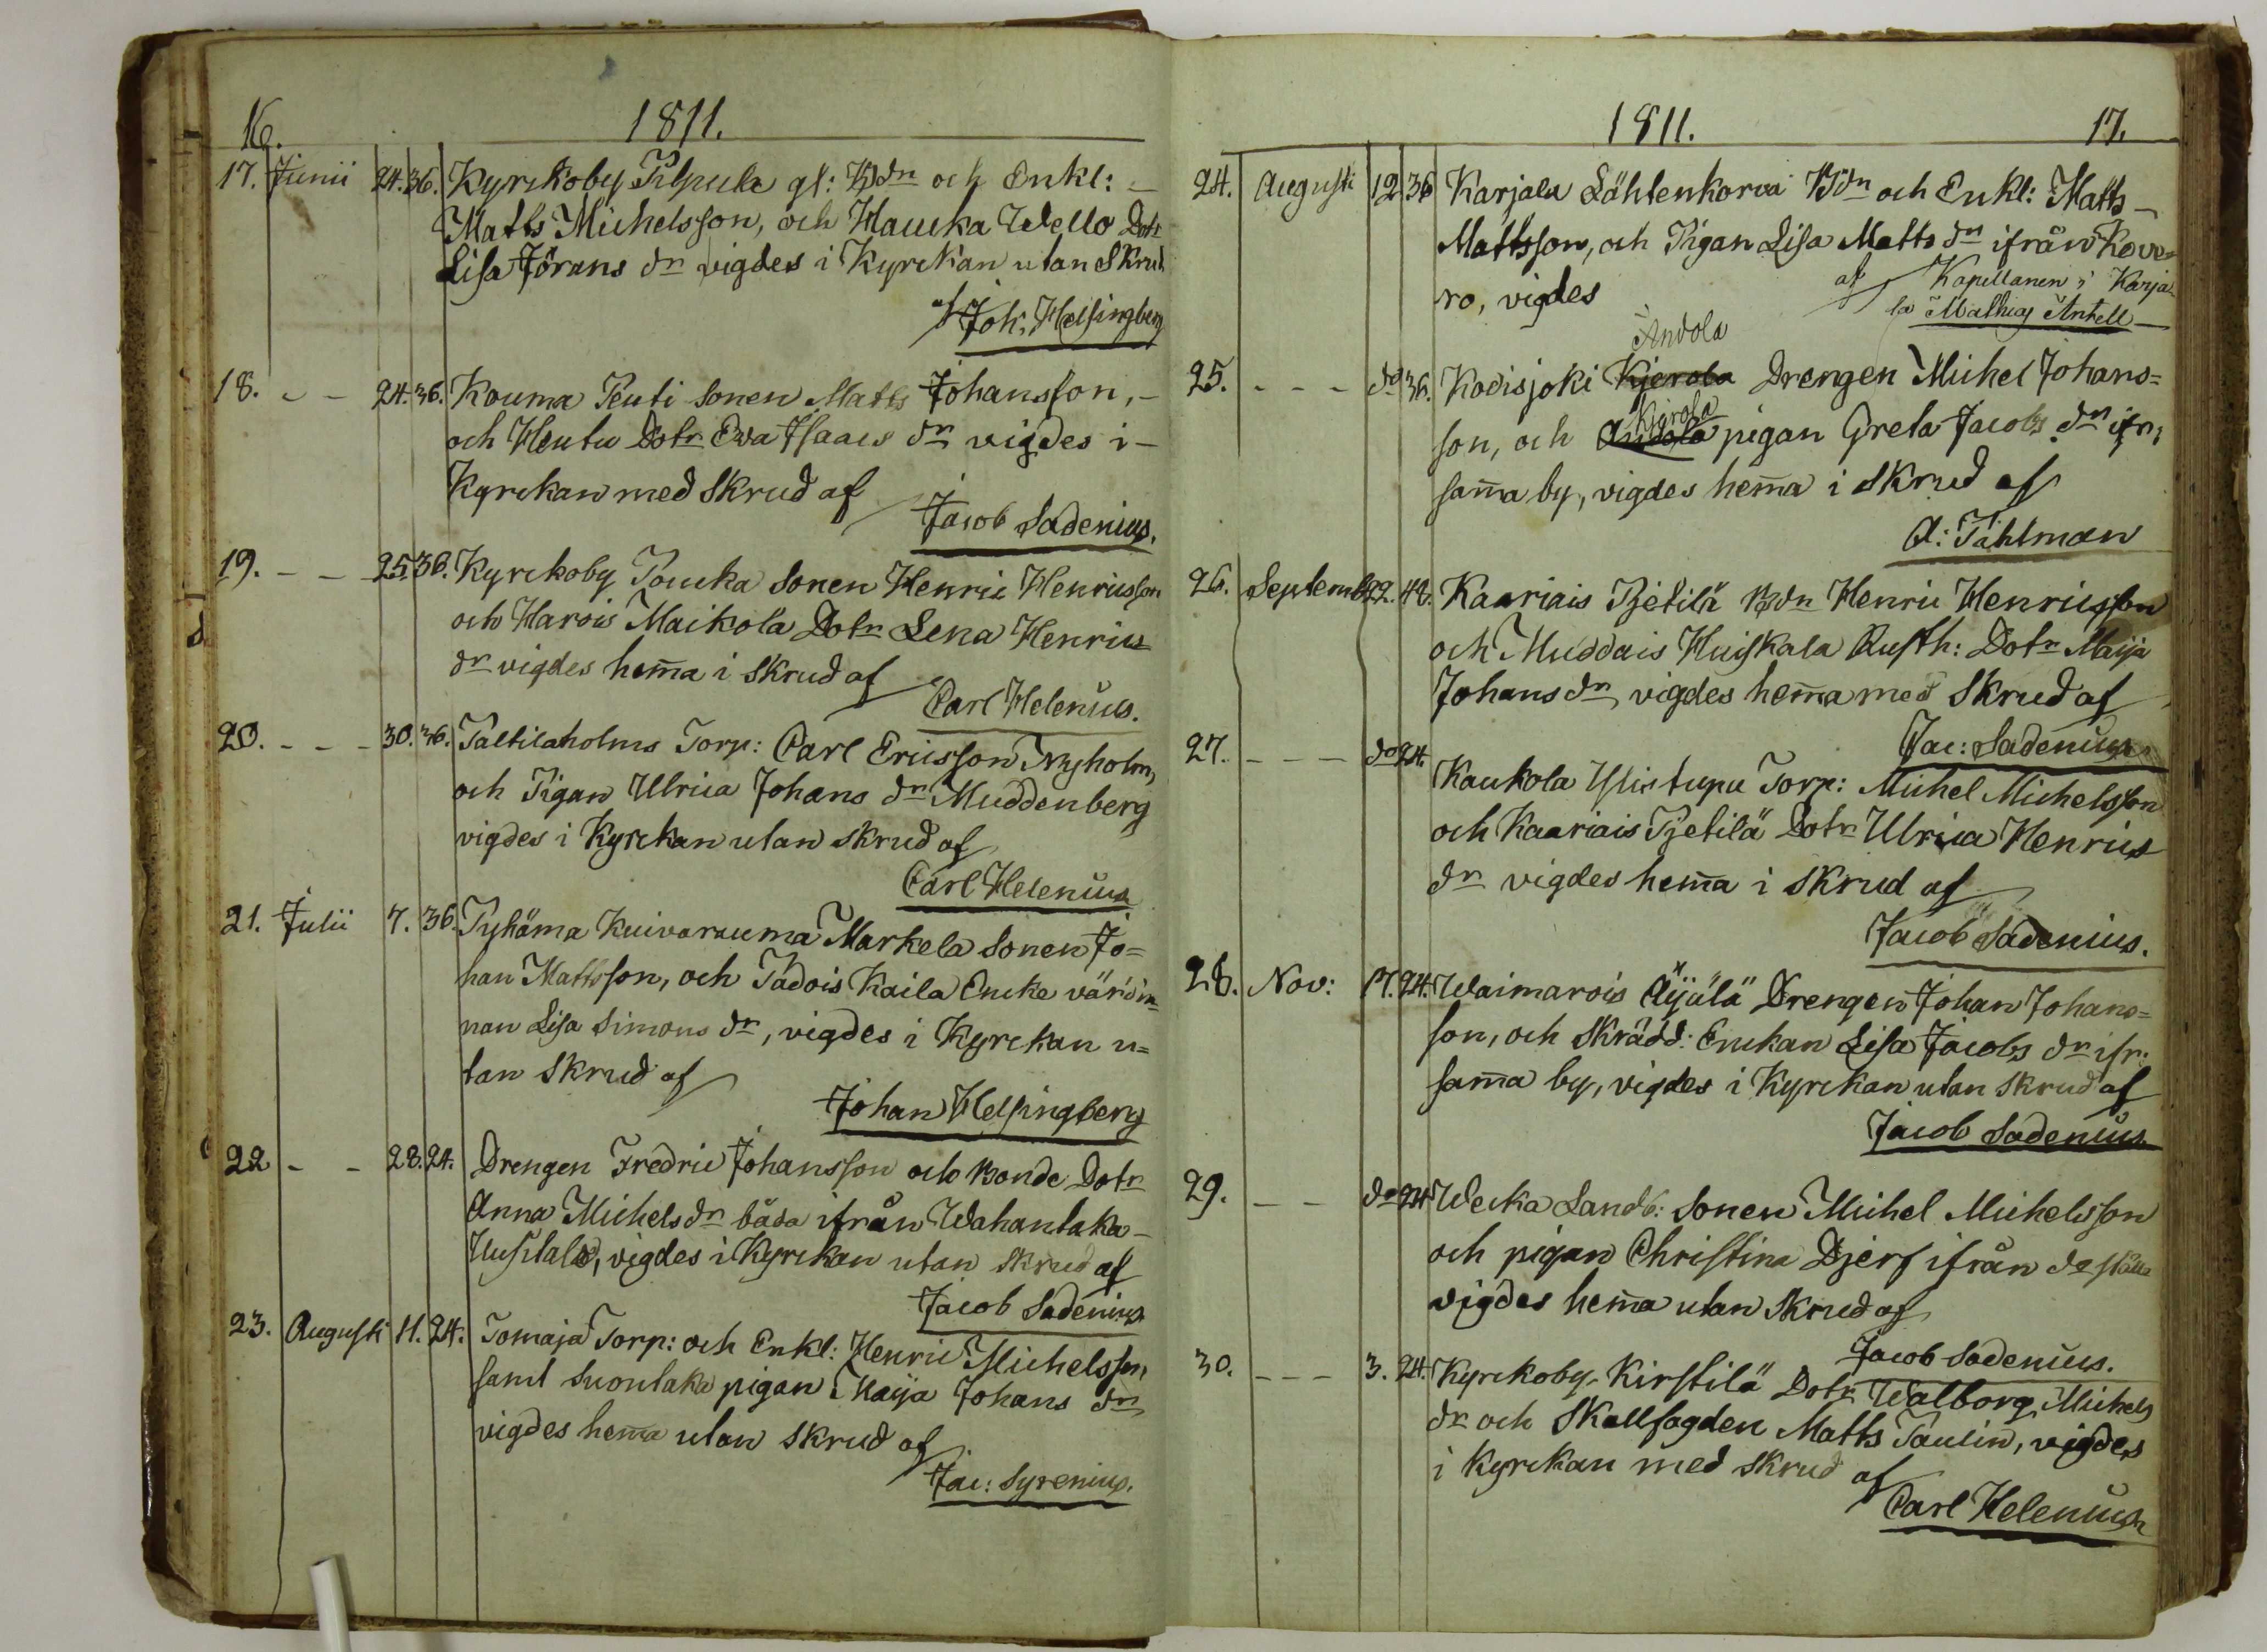 16.
1811.
17. Junii 24. 36. Kyrckoby Pilpula gl: Bdn och Enkl: –
Matts Michelsson, och Haucka Wello Dotr
Lisa Jörans dr vigdes i Kyrckan utan Skrud
af Joh: Helsingberg
18. – – 24. 36. Kouma Penti Sonen Matts Johansson, –
och Hentu Dotr Ewa Isaacs dr vigdes i –
Kyrckan med Skrud af
Jacob Sadenius.
19. – – 25. 36. Kyrckoby Poucka Sonen Henric Henricsson
och Harois Maikola Dotr Lena Henrics
dr vigdes hem̄a i Skrud af
Carl Helenius.
20. – – – 30. 36. Paltilaholms Torp: Carl Ericsson Nyholm,
och Pigan Ulrica Johans dr Muddenberg
vigdes i Kyrckan utan Skrud af
Carl Helenius
21. Julii 7. 36. Pyhäma Kuivarauma Markela Sonen Jo=
han Mattsson, och Padois Kaila Encke värdin=
nan Lisa Simons dr, vigdes i Kyrckan u=
tan Skrud af
Johan Helsingberg
22 – – 28. 24. Drengen Fredric Johansson och Bonde Dotr
Anna Michels dr båda ifrån Wahantaka –
Uusitalo, vigdes i Kyrckan utan Skrud af
Jacob Sadenius
23. Augusti 11. 24. Tomaja Torp: och Enkl: Henric Michelsson,
samt Suontaka pigan Maija Johans dr
vigdes hem̄a utan Skrud af
Jac: Syrenius.
1811. 17.
24. Augusti 12 36 Karjala Lähtenkorva Bdn och Enkl: Matts –
Mattsson, och Pigan Lisa Matts dr ifrån Kove=
ro, vigdes af Kapellanen i Karja
la Mathias Antell –
Andola
25. – – – do 36. Kodisjoki Kjerola Drengen Michel Johans=
Kjerola
son, och Andola pigan Greta Jacobs dr ifr:
sam̄a by, vigdes hem̄a i Skrud af
A: Påhlman
26. Septemb: 22. 48. Kaariais Pjetilä Bdn Henric Henricsson
och Muddais Huiskala Rusth: Dotr Maija
Johans dr vigdes hem̄a med Skrud af
Jac: Sadenius
27. – – – do 24.
Kaukola Ylistupu Torp: Michel Michelsson
och Kaariais Pjetilä Dotr Ulrica Henrics
dr vigdes hem̄a i Skrud af
Jacob Sadenius.
28. Nov: 17. 24. Waimarois Äijälä Drengen Johan Johans=
son, och Skrädd: Enckan Lisa Jacobs dr ifr:
sam̄a by, vigdes i Kyrckan utan Skrud af
Jacob Sadenius
29. – – do 24 Wecka Landb: Sonen Michel Michelsson
och pigan Christina Djerf ifrån do ställe
vigdes hem̄a utan Skrud af
Jacob Sadenius.
30. – – – 3. 24. Kyrckoby Kirstilä Dotr Walborg Michels
dr och Skallfogden Matts Paulin, vigdes
i Kyrckan med Skrud af
Carl Helenius